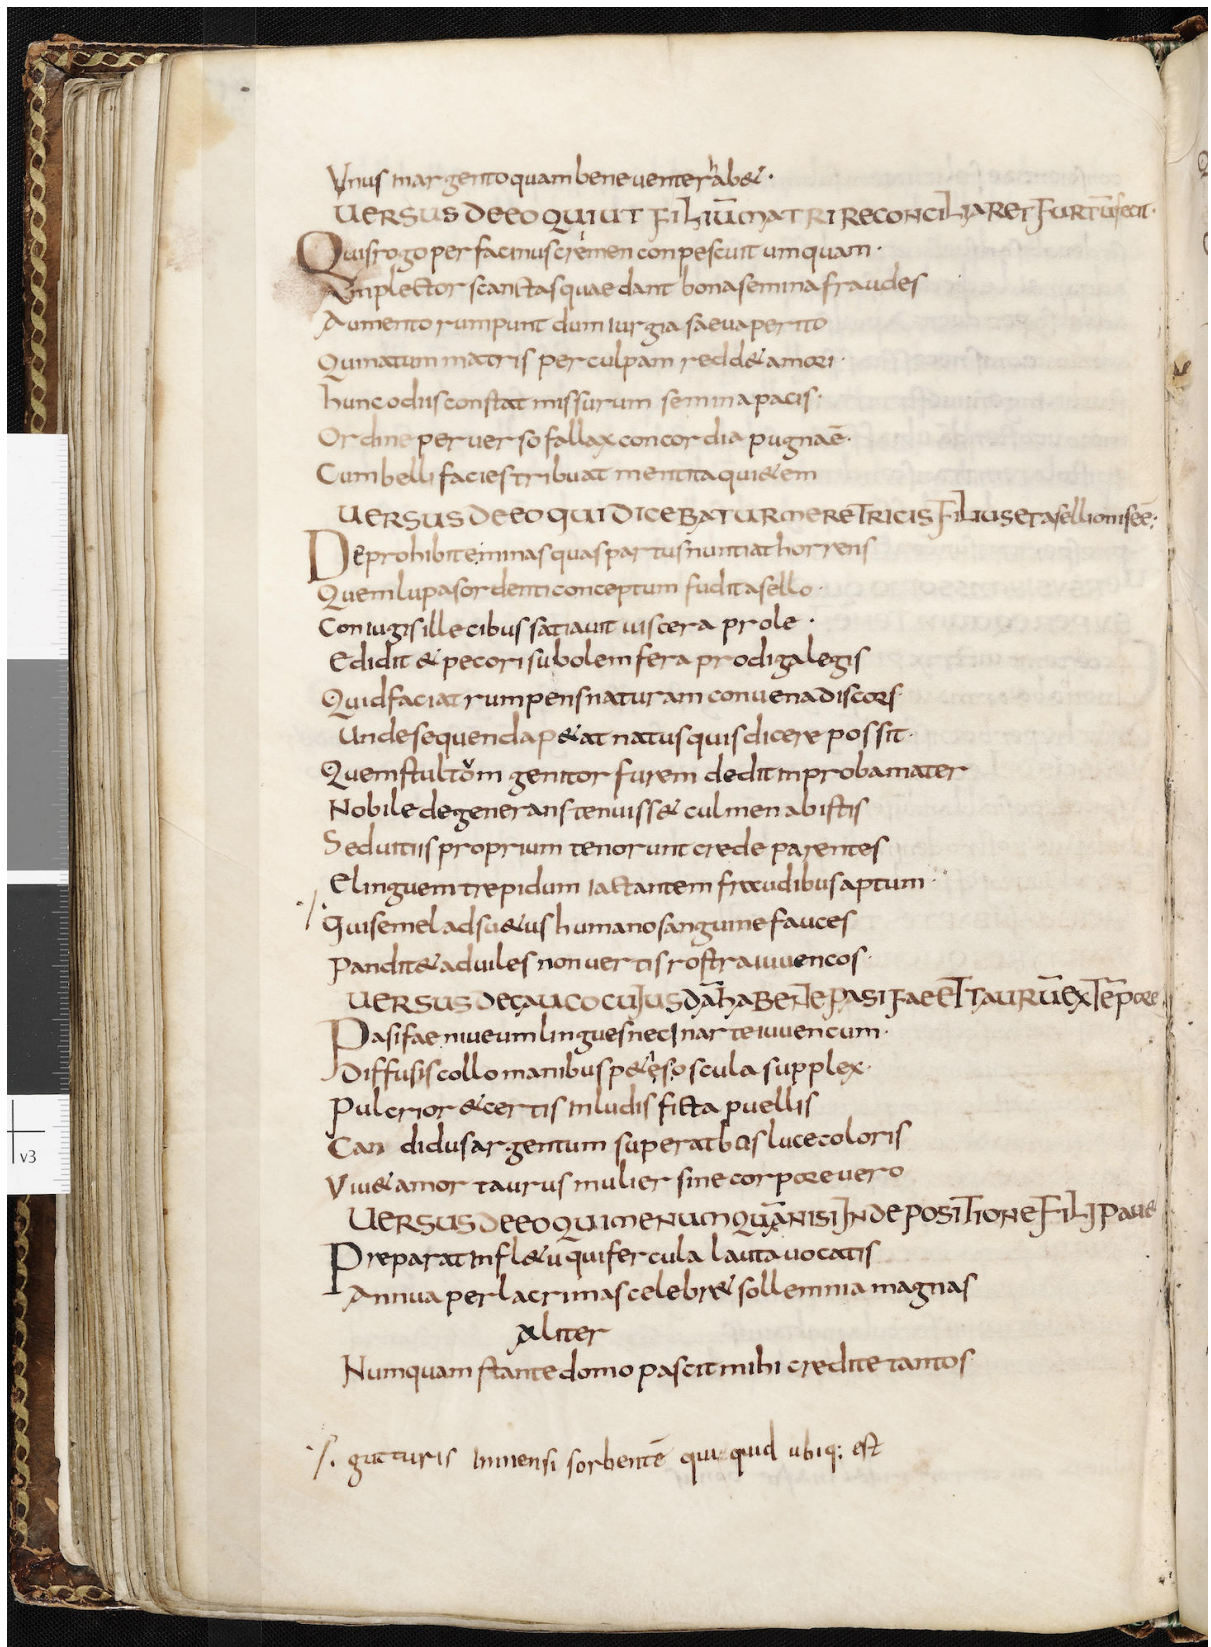 Vnus margento quam bene venter habet·
VERSUS DE EO QUI UT FILIŪ MATRI RECONCILIARET FURTŪ fecit·
Quis rogo per facinus crimen conpescuit umquam·
Amplector scanctas quae dant bona semina fraudes
Aumento rumpunt dum iurgia saeva perito
Qui natum matris per culpam reddet amori·
hunc odiis constat missurum semina pacis·
Ordine perverso fallax concordia pugnae ē·
Cum belli facies tribuat mentita quietem
VERSUS DE EO QUI DICEBATUR MERETRICIS FILIUS ET aselli
De prohibite minas quas partus nuntiat horrens
Quem lupa sordenti conceptum fudit asello·
Coniugis ille cibus satiavit viscera prole·
Edidit & pecori subolem fera prodiga legis
Quid faciat rumpens naturam convena discors·
Unde sequenda petat natus quis dicere possit·
Quem stultom genitor furem dedit inproba mater
Nobile degenerans tenuisset culmen ab istis
Sed vitiis proprium tenorunt crede parentes
Elinguem trepidum iactantem fraudibus aptum·
·/· Qui semel adsuetus humano sanguine fauces
Pandit & ad viles non vertis rostra iuvencos·
VERSUS DE CAUCO CUIUSDĀ HABENTE PASIFAE ET TAURŪ EX TĒPORE
Pasifae niveum lingues nec inarte iuvencum·
Diffusis collo manibus petes oscula supplex·
Pulcrior & certis inludis ficta puellis
Can didus argentum superat bcis luce coloris
Vivet amor taurus mulier sine corpore vero
VERSUS DE EO QUI ME NUMQUĀ NISI IN DEPOSITIONE FILI Pavit
Preparat infletu qui fercula lauta vocatis
Annua per lacrimas celebret sollemnia magnas
Aliter
Numquam stante domo pascit mihi credite tantos
·/· gutturis inmensi sorbentē quicquid ubiq; est